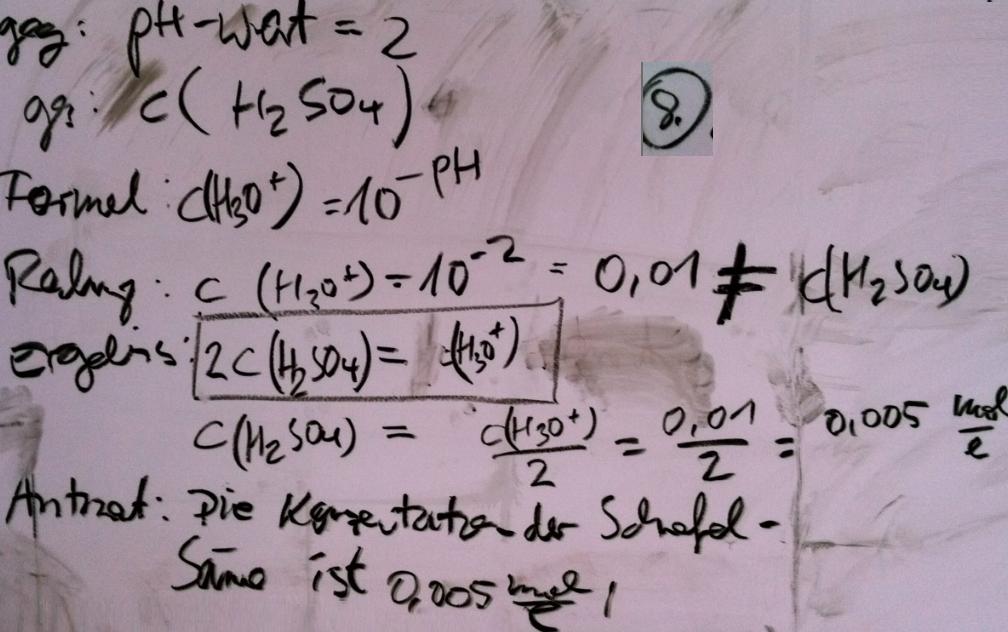 geg: pH-Wert = 2
ges: c(H₂SO₄)
8.
Formel: c(H₃O⁺) = 10⁻ᵖᴴ
c(H₃O⁺) = 10⁻² = 0,01 ≠ c(H₂SO₄)
Ergebnis: 2c(H₂SO₄) = c(H₃O⁺)
c(H₂SO₄) = c(H₃O⁺)/2 = 0,01/2 = 0,005 mol/l
Antwort: Die Konzentration der Schwefel-
säure ist 0,005 mol/l